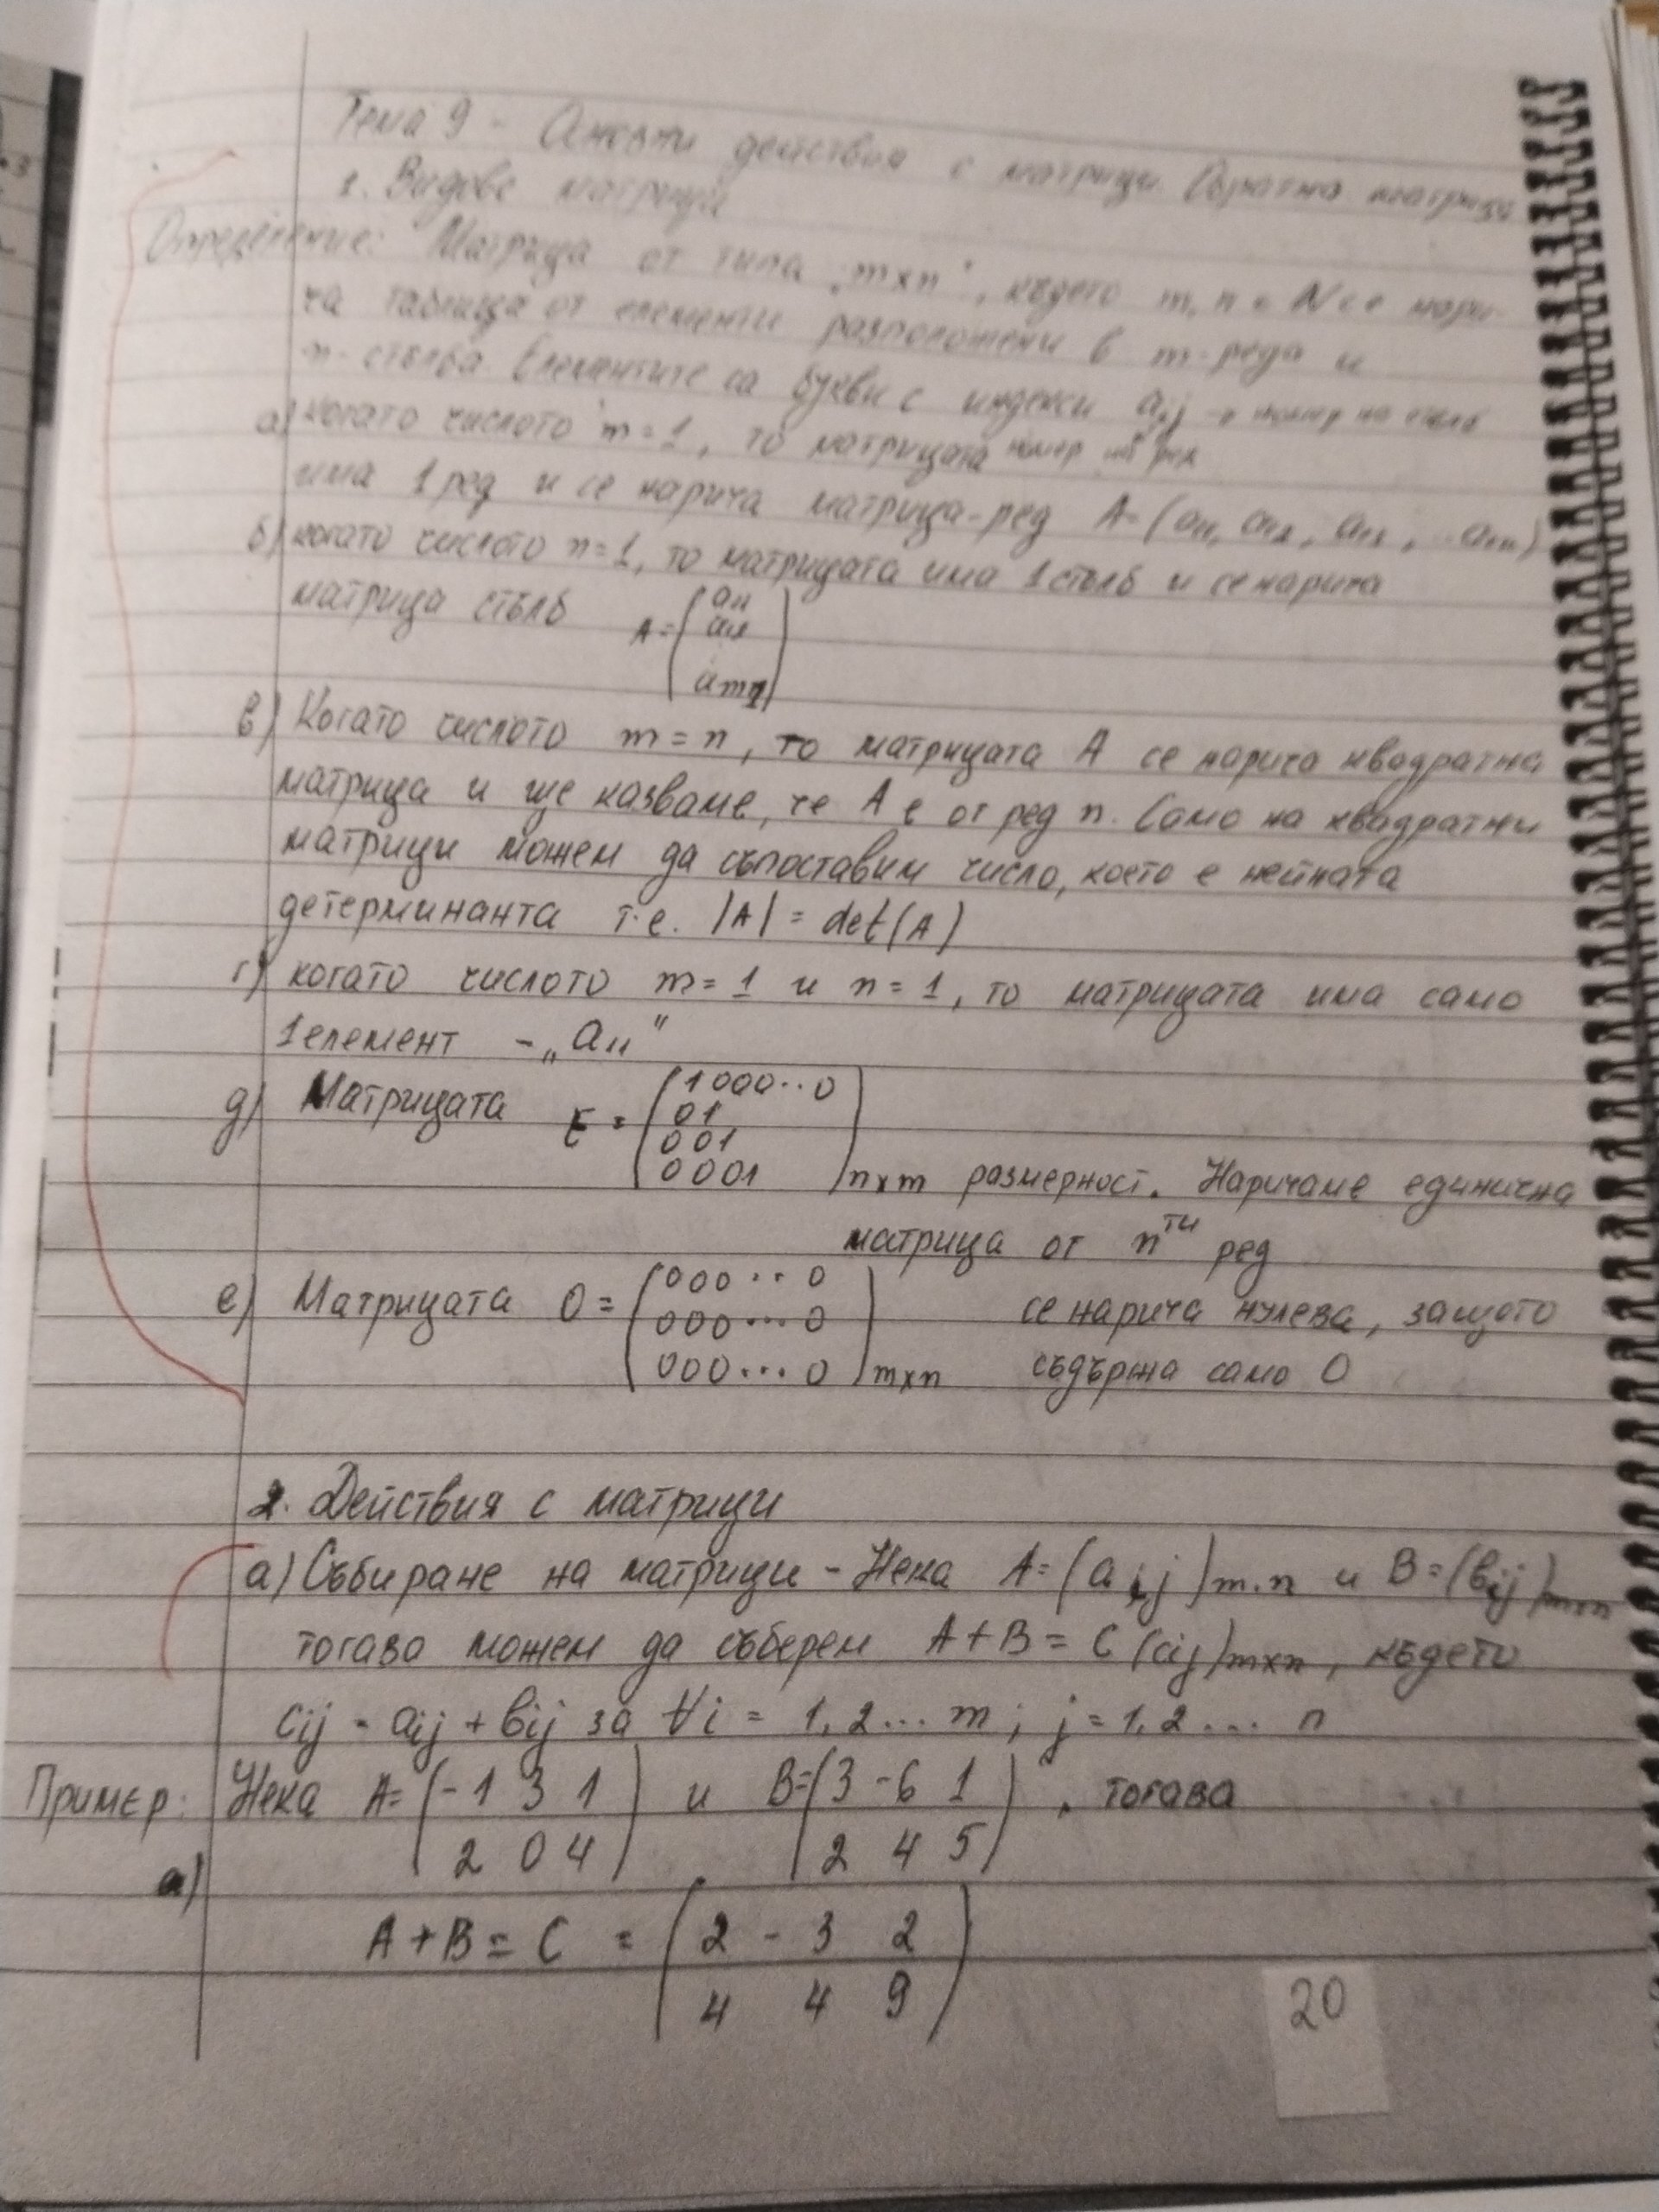 Тема 9 - Основни действия с матрици. Обратна матрица
1. Видове матрици
Определение: Матрица от типа „mxn", където m, n ∈ N се нари-
ча таблица от елементи разположени в m-реда и
n-стълба. Елементите са букви с индекси aij → номер на стълб
номер на ред
а) когато числото m=1, то матрицата
има 1 ред и се нарича матрица-ред A=(a11, a12, a13, ..a1n)
б) когато числото n=1, то матрицата има 1 стълб и се нарича
матрица стълб A=(a11
am1)
в) Когато числото m=n, то матрицата A се нарича квадратна
матрица и ще казваме, че A е от ред n. Само на квадратни
матрици можем да съпоставим число, което е нейната
детерминанта т.е. |A| = det(A)
г) когато числото m=1 и n=1, то матрицата има само
1 елемент - „a11"
д) Матрицата E = (1 0 0 0 .. 0
0 1
0 0 1
0 0 0 1)nxm размерност. Наричаме единична
матрица от nти ред
е) Матрицата O = (0 0 0 ... 0
0 0 0 ... 0
0 0 0 ... 0)mxn се нарича нулева, защото
съдържа само 0
2. Действия с матрици
а) Събиране на матрици - Нека A=(aij)m.n и B=(bij)mxn
тогава можем да съберем A+B = C (cij)mxn, където
cij = aij + bij за ∀i = 1,2... m; j=1,2.... n
Пример: Нека A=(-1 3 1
2 0 4) и B=(3 -6 1
2 4 5), тогава
а)
A+B = C = (2 -3 2
4 4 9)
20